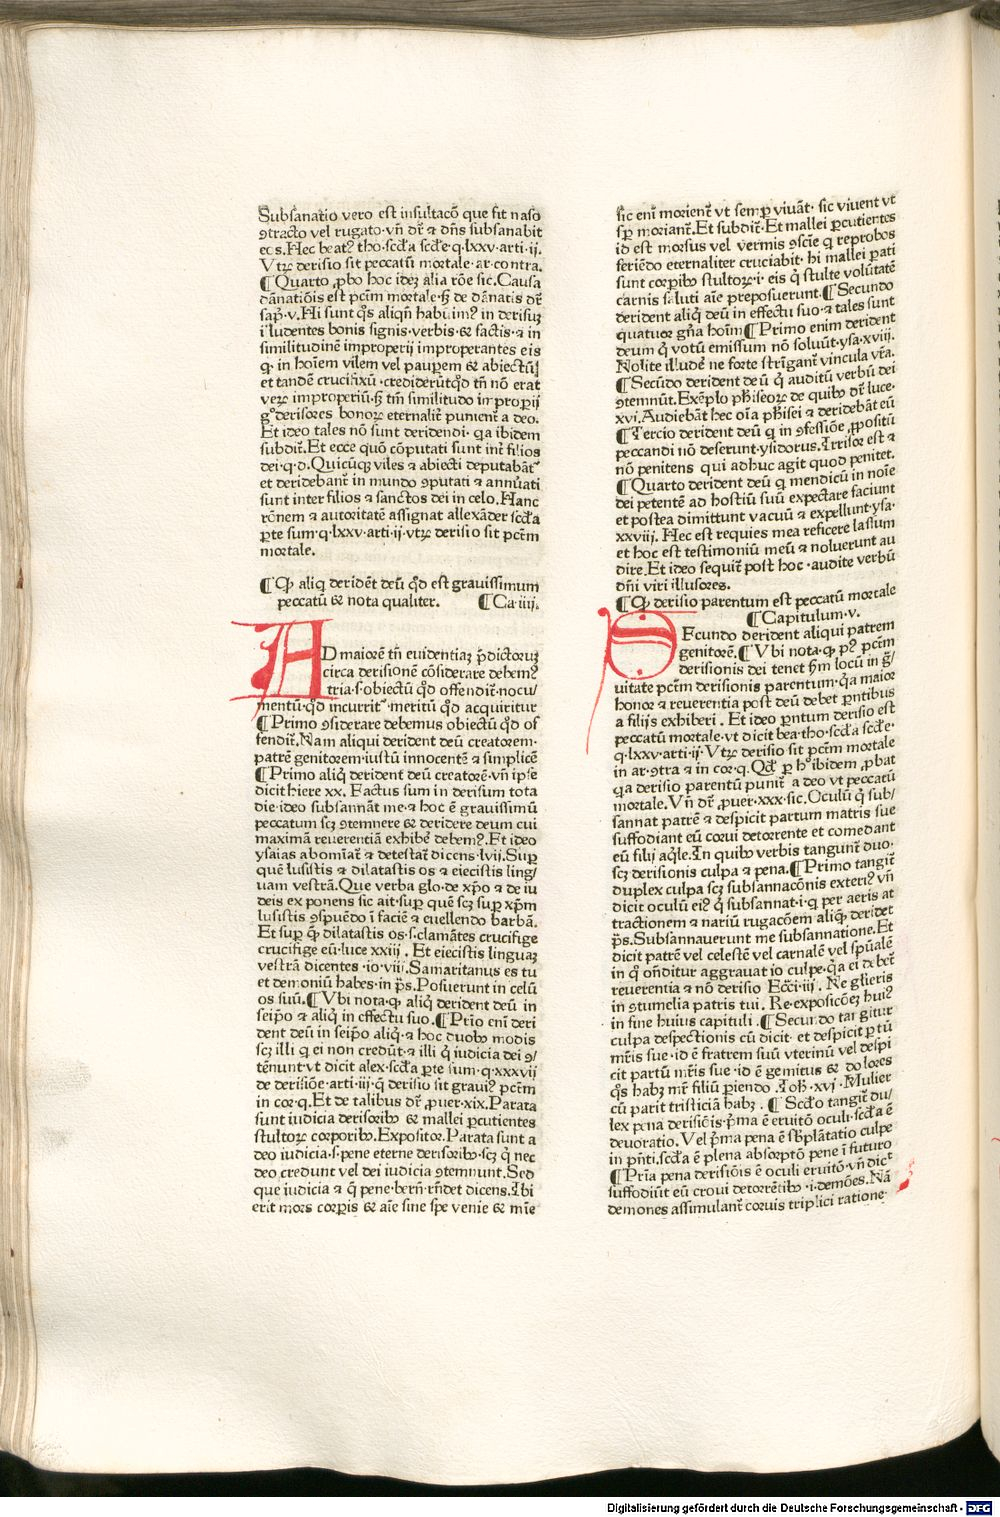 Subsanatio vero est insultacō que fit naso
ꝯtracto vel rugato·vñ dr̄ ⁊ dn̄s subsanabit
eos.Hec beatꝰ tho·scd̓a scd̓e q·lxxv·arti·ij.
Vtꝝ derisio sit peccatū mortale·ar·contra.
¶Quarto ꝓbo hoc ideꝫ alia rōe sic.Causa
dānatiōis est pctm̄ mortale·ꝫ de dānatis dr̄
sap̄·v.Hi sunt q̊s aliqn̄ habuimꝰ in derisuꝫ
illudentes bonis signis·verbis·& factis·⁊ in
similitudinē improperij improperantes eis
ꝙ· in hoīem vilem vel pauꝑem & abiectū
et tandē crucifixū·crediderūt qd̓ tn̄ nō erat
veꝝ improperiū·ꝫ tm̄ similitudo improperij
gͦ derisores bonoꝝ eternalit̓ punient̓ a deo.
Et ideo tales nō sunt deridendi·qa ibidem
subdit̓.Et ecce quō cōputati sunt int̓ filios
dei·q·d.Quicūqꝫ viles ⁊ abiecti deputabāt᷑
et deridebant̓ in mundo ꝯputati ⁊ annūati
sunt inter filios ⁊ sanctos dei in celo.Hanc
rōnem ⁊ autoritatē assignat allexāder scd̓a
ꝑte sum·q·lxxv·arti·ij·vtꝝ derisio sit pctm̄
mortale.
¶Qꝙ aliq̄ deridēt deū qd̓ est grauissimum
peccatū & nota qualiter. ¶Ca·iiij.
AD maiorē tn̄ euidentiaꝫ p̄dictoruꝫ
circa derisionē cōsiderare debemꝰ
tria·s·obiectū qd̓ offendit̓·nocu/
mentū·qd̓ incurrit᷑·meritū qd̓ acquiritur
¶Primo ꝯsiderare debemus obiectū qd̓ of
fendit̓.Nam aliqui derident deū creatorem·
patrē genitorem·iustū innocentē ⁊ simplicē
¶Primo aliq̄ derident deū creatorē·vñ ipse
dicit hiere xx. Factus sum in derisum tota
die·ideo subsannāt me·⁊ hoc ē grauissimū
peccatum scꝫ ꝯtemnere & deridere deum cui
maximā reuerentiā exhibē debemꝰ.Et ideo
ysaias abomīat̓ ⁊ detestat̓ dicens·lvij.Suꝑ
quē lusistis ⁊ dilatastis os ⁊ eiecistis ling/
uam vestrā.Que verba glo·de xp̄o ⁊ de iu
deis exponens sic ait·suꝑ quē scꝫ suꝑ xp̄m
lusistis ꝯspuēdo ī faciē ⁊ euellendo barbā.
Et suꝑ quē dilatastis os·s·clamātes crucifige
crucifige eū·luce xxiij. Et eiecistis linguaꝫ
vestrā dicentes·io·viij.Samaritanus es tu
et demoniū habes·in ps̄.Posuerunt in celū
os suū.¶Vbi nota·ꝙ aliq̄ derident deū in
seip̄o ⁊ aliq̄ in effectu suo.¶Prīo enī deri
dent deū in seip̄o aliq̄·⁊ hoc duobꝰ modis
scꝫ illi q̄ ei non credūt·⁊ illi q̄ iudicia dei ꝯ/
tēnunt·vt dicit alex·scd̓a ꝑte sum·q·xxxvij
de derisiōe·arti·iij·q̄ derisio sit grauiꝰ pctm̄
in cor·q.Et de talibus dr̄ ꝓuer·xix.Parata
sunt iudicia derisoribꝰ & mallei ꝑcutientes
stultoꝝ corporibꝰ.Expositor.Parata sunt a
deo iudicia·s·pene eterne derisoribꝰ·scꝫ q̄ nec
deo credunt vel dei iudicia ꝯtemnunt.Sed
que iudicia ⁊ q̄ pene·bern̄·rn̄det dicens.Ibi
erit mors corꝑis & aīe sine spe venie & mīe
sic enī morient̓ vt semꝑ viuāt· sic viuent vt
sꝑ moriant̓.Et subdit̓·Et mallei ꝑcutientes
id est morsus vel vermis ꝯsciē q̄ reprobos
feriēdo eternaliter cruciabit· hi mallei ꝑati
sunt corꝑibꝰ stultoꝝ·i·eis q̄ stulte volūtatē
carnis saluti aīe preposuerunt.¶Secundo
derident aliq̄ deū in effectu suo·⁊ tales sunt
quatuor gn̄a hoīm¶Primo enim derident
deum q̄ votū emissum nō soluūt·ysa·xviij.
Nolite illudē ne forte strīgant̓ vincula vr̄a.
¶Secūdo derident deū q̄ auditū verbū dei
ꝯtemnūt.Exēplo ph̄iseoꝝ de quibꝰ dr̄ luce·
xvi.Audiebāt hec oīa ph̄isei ⁊ deridebāt eū
¶Tercio derident deū q̄ in ꝯfessiōe ꝓpositū
peccandi nō deserunt·ysidorus.Irrisor est ⁊
nō penitens qui adhuc agit quod penitet.
¶Quarto derident deū q̄ mendicū in noīe
dei petentē ad hostiū suū expectare faciunt
et postea dimittunt vacuū ⁊ expellunt·ysa·
xxviij. Hec est requies mea reficere lassum
et hoc est testimoniū meū ⁊ noluerunt au
dire.Et ideo sequit̓ post hoc·audite verbū
dn̄i viri illusores.
¶Qꝙ derisio parentum est peccatū mortale
¶Capitulum·v.
SEcundo derident aliqui patrem
genitorē.¶Vbi nota·ꝙ pꝰ pctm̄
derisionis dei tenet sm̄ locū in g̓/
uitate pctm̄ derisionis parentum·q̄a maior
honor ⁊ reuerentia post deū debet ꝑentibus
a filijs exhiberi. Et ideo ꝑntum derisio est
peccatū mortale·vt dicit bea·tho·scd̓a scd̓e·
q·lxxv·arti·ij·Vtꝝ derisio sit pctm̄ mortale
in ar·ꝯtra ⁊ in cor·q.Qd̓ ꝑ hͦ ibidem ꝓbat
q̄a derisio parentū punit̓ a deo vt peccatū
mortale.Vñ dr̄ ꝓuer·xxx·sic.Oculū q̄ sub/
sannat patrē ⁊ despicit partum matris sue
suffodiant eū corui de torrente et comedant
eū filij aq̄le.In quibꝰ verbis tangunt̓ duo·
scꝫ derisionis culpa ⁊ pena.¶Primo tangit̓
duplex culpa scꝫ subsannacōnis exteriꝰ vñ
dicit oculū eiꝰ q̄ subsannat·i·q̄ per aeris at
tractionem ⁊ nariū rugacōem aliq̄ deridet
ps̄.Subsannauerunt me subsannatione.Et
dicit patrē vel celestē vel carnalē vel spūalē
in q̄ on̄ditur aggrauatio culpe·q̄a ei debet̓
reuerentia ⁊ nō derisio Ecc̄i·iij. Ne glieris
in ꝯtumelia patris tui. Re·exposicōeꝫ huiꝰ
in fine huius capituli.¶Secundo tangitur
culpa despectionis cū dicit· et despicit ꝑtū
mr̄is sue·id ē fratrem suū vterinū vel despi
cit partū mr̄is sue·id ē gemitus & dolores
q̊s habꝫ mr̄ filiū ꝑiendo.Ioh̄·xvj·Mulier
cū parit tristiciā habꝫ. ¶Scd̓o tangit̓ du/
lex pena derisiōis·p̄ma ē eruitō oculi·scd̓a ē
deuoratio.Vel p̄ma pena ē sb̄plātatio culpe
in pn̄ti·scd̓a ē plena absorptō pene ī futuro
¶Prīa pena derisiōis ē oculi eruitō·vñ dicit
suffodiūt eū croui de torrētibꝰ·i·demōes.Nā
demones assimulant̓ coruis triplici ratione·
Digitalisierung gefördert durch die Deutsche Forschungsgemeinschaft - DFG